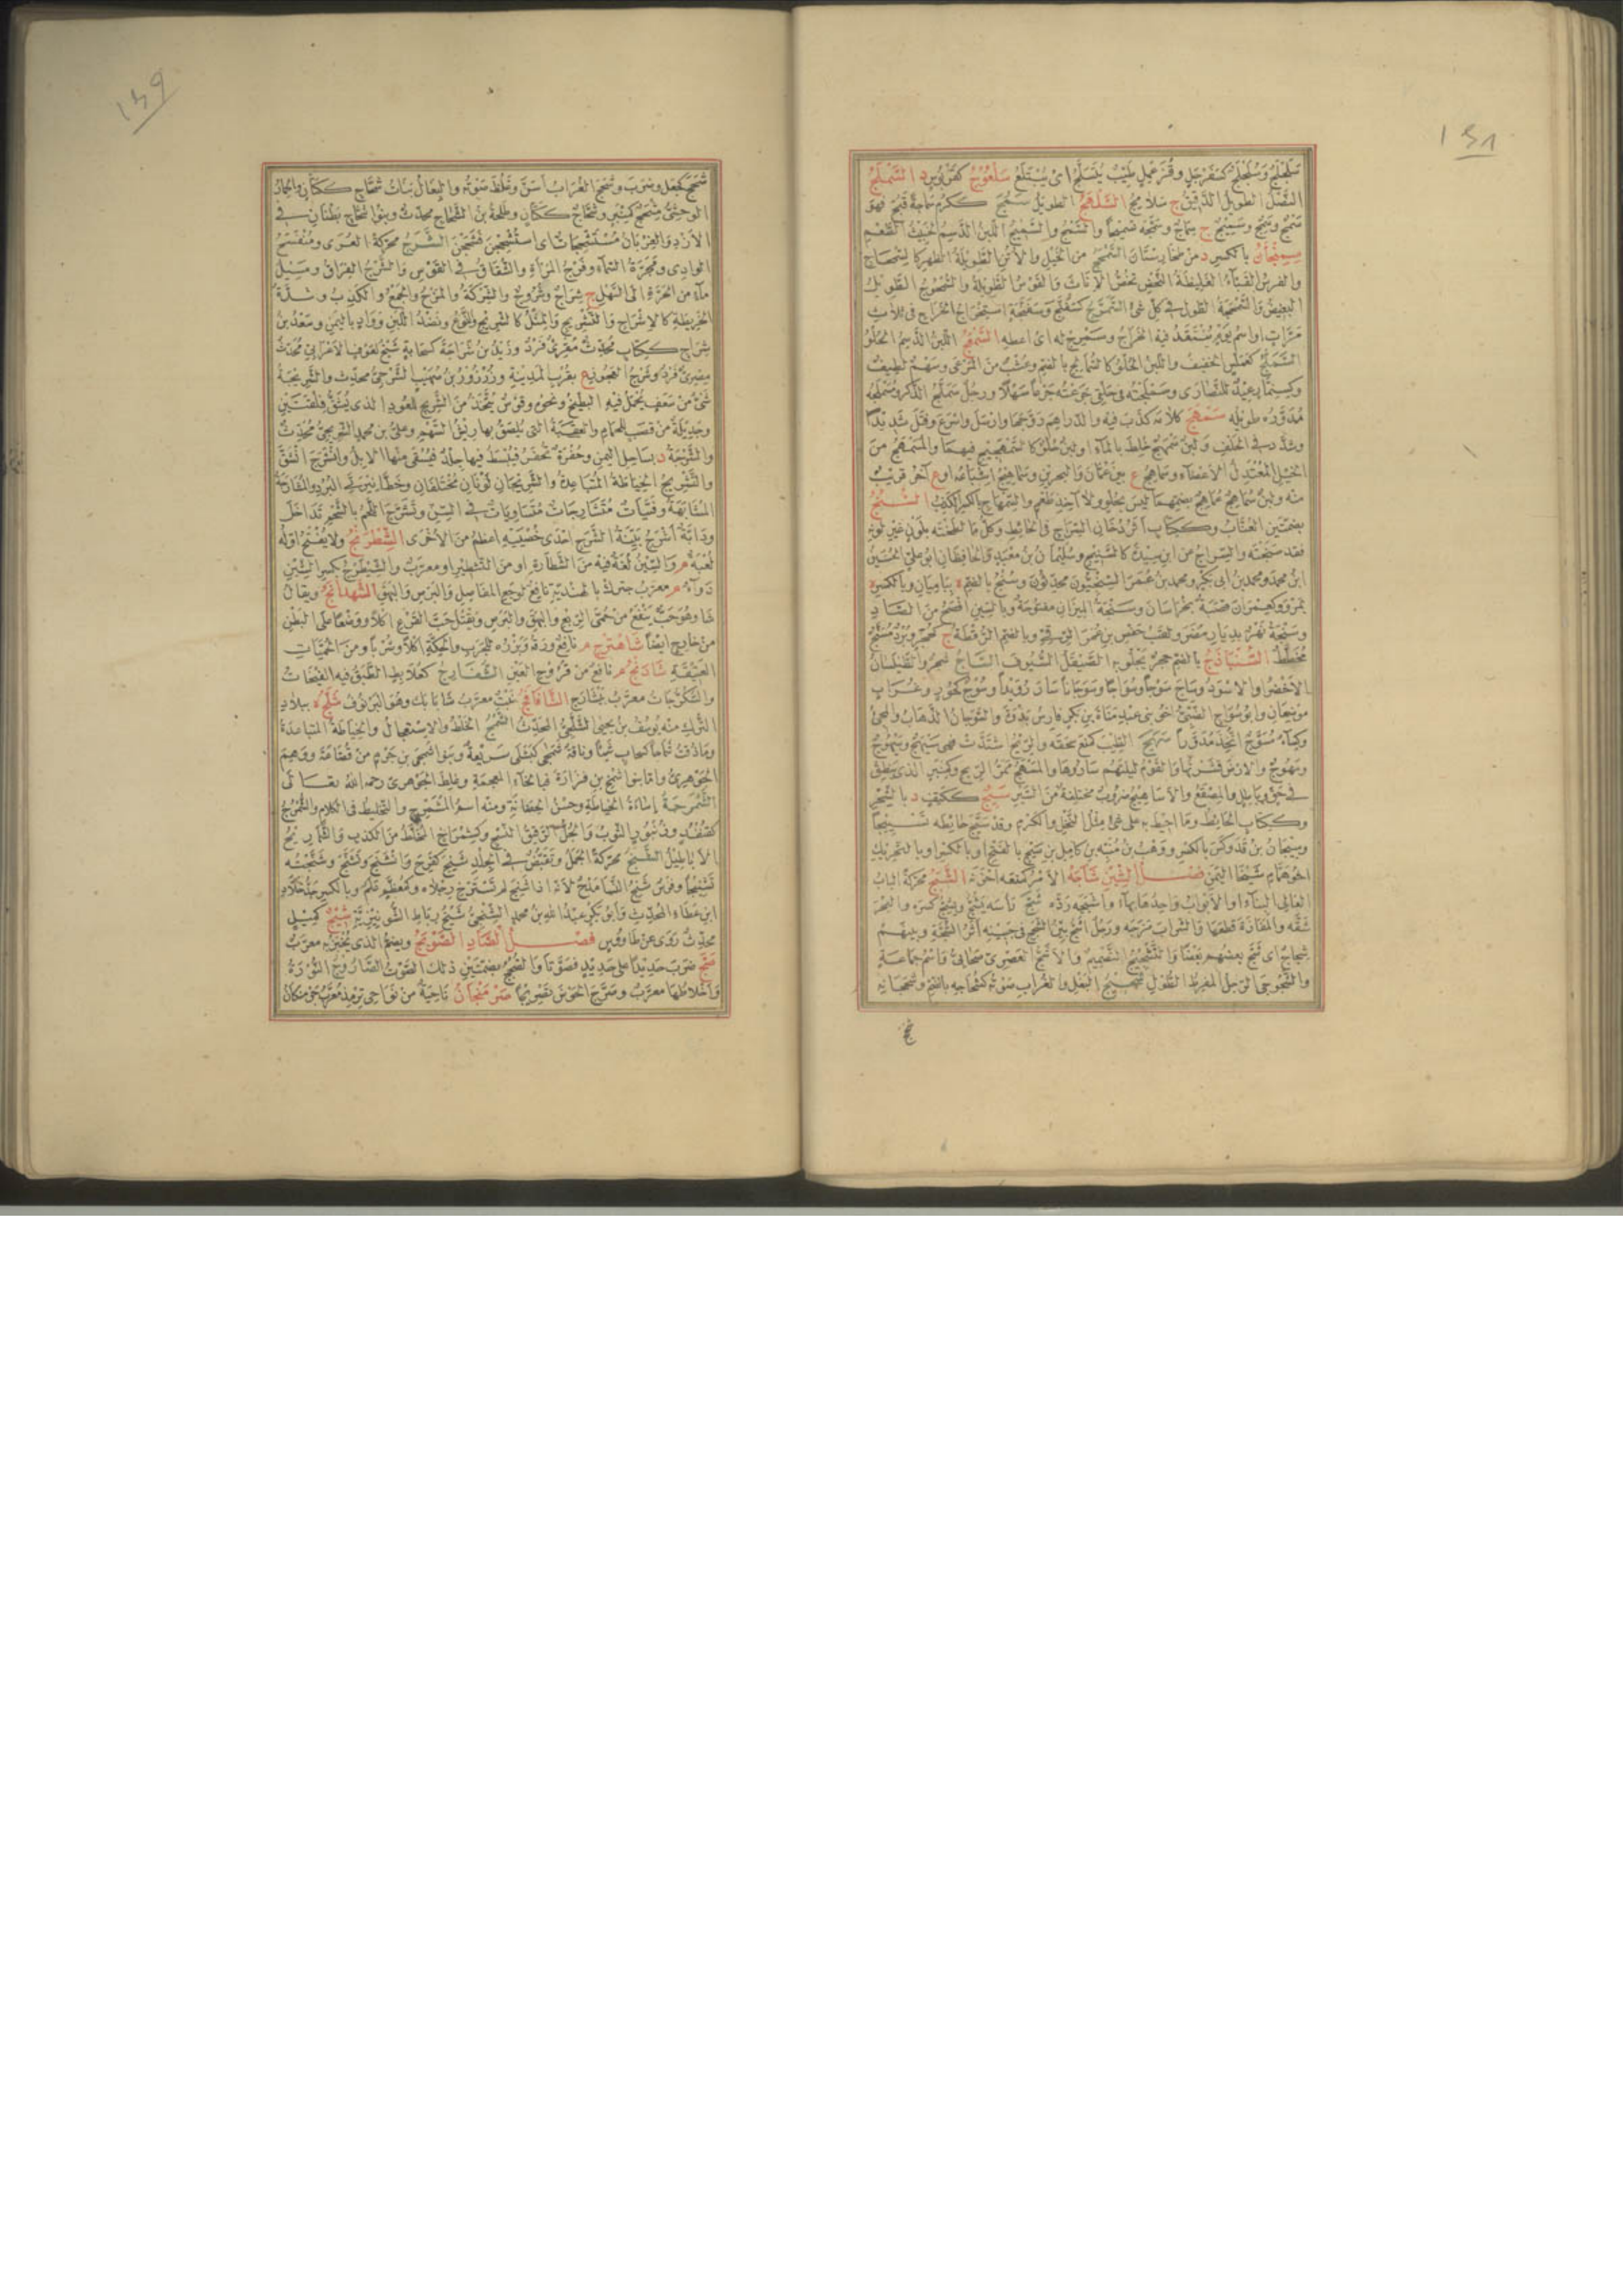 ١٤٨
سلجلج وسلجلج كسفرجل وقذعمل طيب يتسلج اى يبتلع سلعوج كقربوس د السملج
النصل الطويل الدقيق ج سلامج السلهج الطويل سمج ككرم سماجة قبح فهو
سمج وسمج وسميج ج سماج وسمجه تسميجا والسمج والسميج اللبن الدسم الخبيث الطعم
سمنجان بالكسر د من طخارستان السمحج من الخيل والاتن الطويلة الظهر كالسمحاج
والفرس القباء الغليظة النحض تخص الاناث والقوس الطويلة والسمحوج الطويل
البغيض والسمحجة الطول فى كل شئ السمرج كسفنج وسفنجة استخراج الخراج فى ثلاث
مرات او اسم يوم ينتقد فيه الخراج وسمرج له اى اعطه السمعج اللبن الدسم الحلو
السملج كعملس الخفيف واللبن الحلو كالسمالج بالضم وعشب من المرعى وسهم لطيف
وكسنمار عيد للنصارى وسملجته فى حلقى جرعته جرعا سهلا ورجل سملج الذكر ومسملجه
مدوره طويله سمهج كلامه كذب فيه والدراهم روجها وارسل واسرع وفتل شديدا
وشدد فى الحلف ولبن سمهج خلط بالماء او لبن حلو كالسمهجيج فيهما والمسمهج من
الخيل المعتدل الاعضاء وسماهج ع بين عمان والبحرين وسماهيج اشباعه او ع آخر قريب
منه ولبن سماهج عماهج بضمهما ليس بحلو ولا آخذ طعم والسمهاج بالكسر الكذب السنج
بضمتين العناب وككتاب اثر دخان السراج فى الحائط وكل ما لطخته بلون غير لونه
فقد سنجته والسراج عن ابن سيدة كالسنيج وسليمان بن معبد والحافظان ابو على الحسين
ابن محمد ومحمد بن ابى بكر ومحمد بن عمر السنجيون محدثون وسنج بالضم ة بباميان وبالكسر ة
بمرو وكعمران قصبة بخراسان وسنجة الميزان مفتوحة وبالسين افصح من الصاد
وسنجة نهر بديار مضر ولقب حفص بن عمر الرقى وبالضم الرقطة ج كحجر وبرد مسنج
مخطط السنباذج بالضم حجر يجلو به الصيقل السيوف الساج شجر والطيلسان
الاخضر او الاسود وساج سوجا وسواجا وسوجانا سار رويدا وسوج كحور وغراب
موضعان وابو سواج الضبى اخو بنى عبد مناة بن بكر فارس بذوة والسوجان الذهاب والمجئ
وكساء مسوج اتخذ مدورا سهج الطيب كمنع سحقه والريح اشتدت فهى سيهج وسيهوج
وسهوج والارض قشرتها والقوم ليلتهم ساروها والمسهج ممر الريح وكمنبر الذى ينطلق
فى حق وباطل والمصقع والاساهيج ضروب مختلفة من السير سيج ككتف د بالشحر
وككتاب الحائط وما احيط به على شئ مثل النخل والكرم وقد سيج حائطه تسييجا
وسيجان بن فدوكس بالكسر ووهب بن منبه بن كامل بن سيج بالفتح او بالكسر او بالتحريك
اخو همام شيخا اليمن فصل الشين شأجه الامر كمنعه احزنه الشبج محركة الباب
العالى البناء او الابواب واحدها بهاء واشبجه رده شج رأسه يشج ويشج كسره والبحر
شقه والمفازة قطعها والشراب مزجه ورجل اشج بين الشجج فى جبينه اثر الشجة وبينهم
شجاج اى شج بعضهم بعضا والتشجيج التصميم والاشج العصرى صحابى واسم جماعة
والشجوجى الرجل المفرط الطول شحيج البغل والغراب صوته كشحاجه بالضم وشحجانه
شحج
١٤٩
شحج كجعل وضرب وشحج الغراب اسن وغلظ صوته والبغال بنات شحاج ككتان والحمار
الوحشى مشحج كمنبر وشحاج ككتان وطلحة بن الشحاج محدث وبنو شحاج بطنان فى
الازد والغربان مستشحجات اى استشحجن فشحجن الشرج محركة العرى ومنفسح
الوادى ومجرة السماء وفرج المرأة والشقاق فى القوس والشرج الفرقة ومسيل
ماء من الحرة الى السهل ج شراج وشروج والشركة والمزج والجمع والكذب وشدة
الخريطة كالاشراج والتشريج والمثل كالشريج والنوع ونضد اللبن وواد باليمن وسعد بن
شراج ككتاب محدث مقرئ فرد وزيد بن شراجة كسحابة شيخ لعوف الاعرابى محدث
مصرى فرد وشرج العجوز ع بقرب المدينة وزرزور بن صهيب الشرجى محدث والشريجة
شئ من سعف يحمل فيه البطيخ ونحوه وقوس يتخذ من الشريج للعود الذى يشق فلقتين
وجديلة من قصب للحمام والعقبة التى يلصق بها ريش السهم وعلى بن محمد الشريجى محدث
والشرجة د بساحل اليمن وحفرة تحفر فيبسط فيها جلد فيسقى منها الابل وانشرج انشق
والتشريج الخياطة المتباعدة والشريجان لونان مختلفان وخطا نيرى البرد والمشارجة
المشابهة وفتيات مشارجات متساويات فى السن وتشرج اللحم بالشحم تداخل
ودابة اشرج بينة الشرج احدى خصييه اعظم من الاخرى الشطرنج ولا يفتح اوله
لعبة م والسين لغة فيه من الشطارة او من التشطير او معرب والشيطرج بكسر الشين
دواء م معرب جترك بالهندية نافع لوجع المفاصل والبرص والبهق الشهدانج ويقال
شاهدانج وهو حب ينفع من حمى الربع والبهق والبرص ويقتل حب القرع اكلا ووضعا على البطن
من خارج ايضا شاهترج م نافع ورقه وبزره للجرب والحكة اكلا وشربا ومن الحميات
العتيقة شاذنج م نافع من قروح العين الشفارج كعلابط الطبق فيه الفيخات
والسكرجات معرب بيشارج الشافانج نبت معرب شابابك وهو البرنوف شلج ة ببلاد
الترك منه يوسف بن يحيى الشلجى المحدث الشمج الخلط والاستعجال والخياطة المتباعدة
وما ذقت شماجا كسحاب شيئا وناقة شمجى كبشكى سريعة وبنو شمجى بن جرم من قضاعة ووهم
الجوهرى واما بنو شمخ بن فزارة فبالخاء المعجمة وغلط الجوهرى رحمه الله تعالى
الشمرجة اساءة الخياطة وحسن الحضانة ومنه اسم المشمرج والتخليط فى الكلام والشمروج
كقنفذ وزنبور الثوب والجل الرقيق النسج وكشمراخ المخلط من الكذب والشماريج
الاباطيل الشنج محركة الجمل وتقبض فى الجلد شنج كفرح وانشنج وتشنج وشنجته
تشنيجا وفرس شنج النسا مدح لانه اذا شنج لم تسترخ رجلاه وكمعظم علم وبالكسر جد خلاد
ابن عطاء المحدث وابو بكر عبد الله بن محمد الشنجى شيخ رباط الشونيزية شيج كميل
محدث روى عن طاووس فصل الصاد الصوبج ويضم الذى يخبز به معرب
صج ضرب حديدا على حديد فصوتا والصجج بضمتين ذلك الصوت الصاروج النورة
واخلاطها معرب وصرج الحوض تصريجا صرمنجان ناحية من نواحى ترمذ معرب جرمنكان